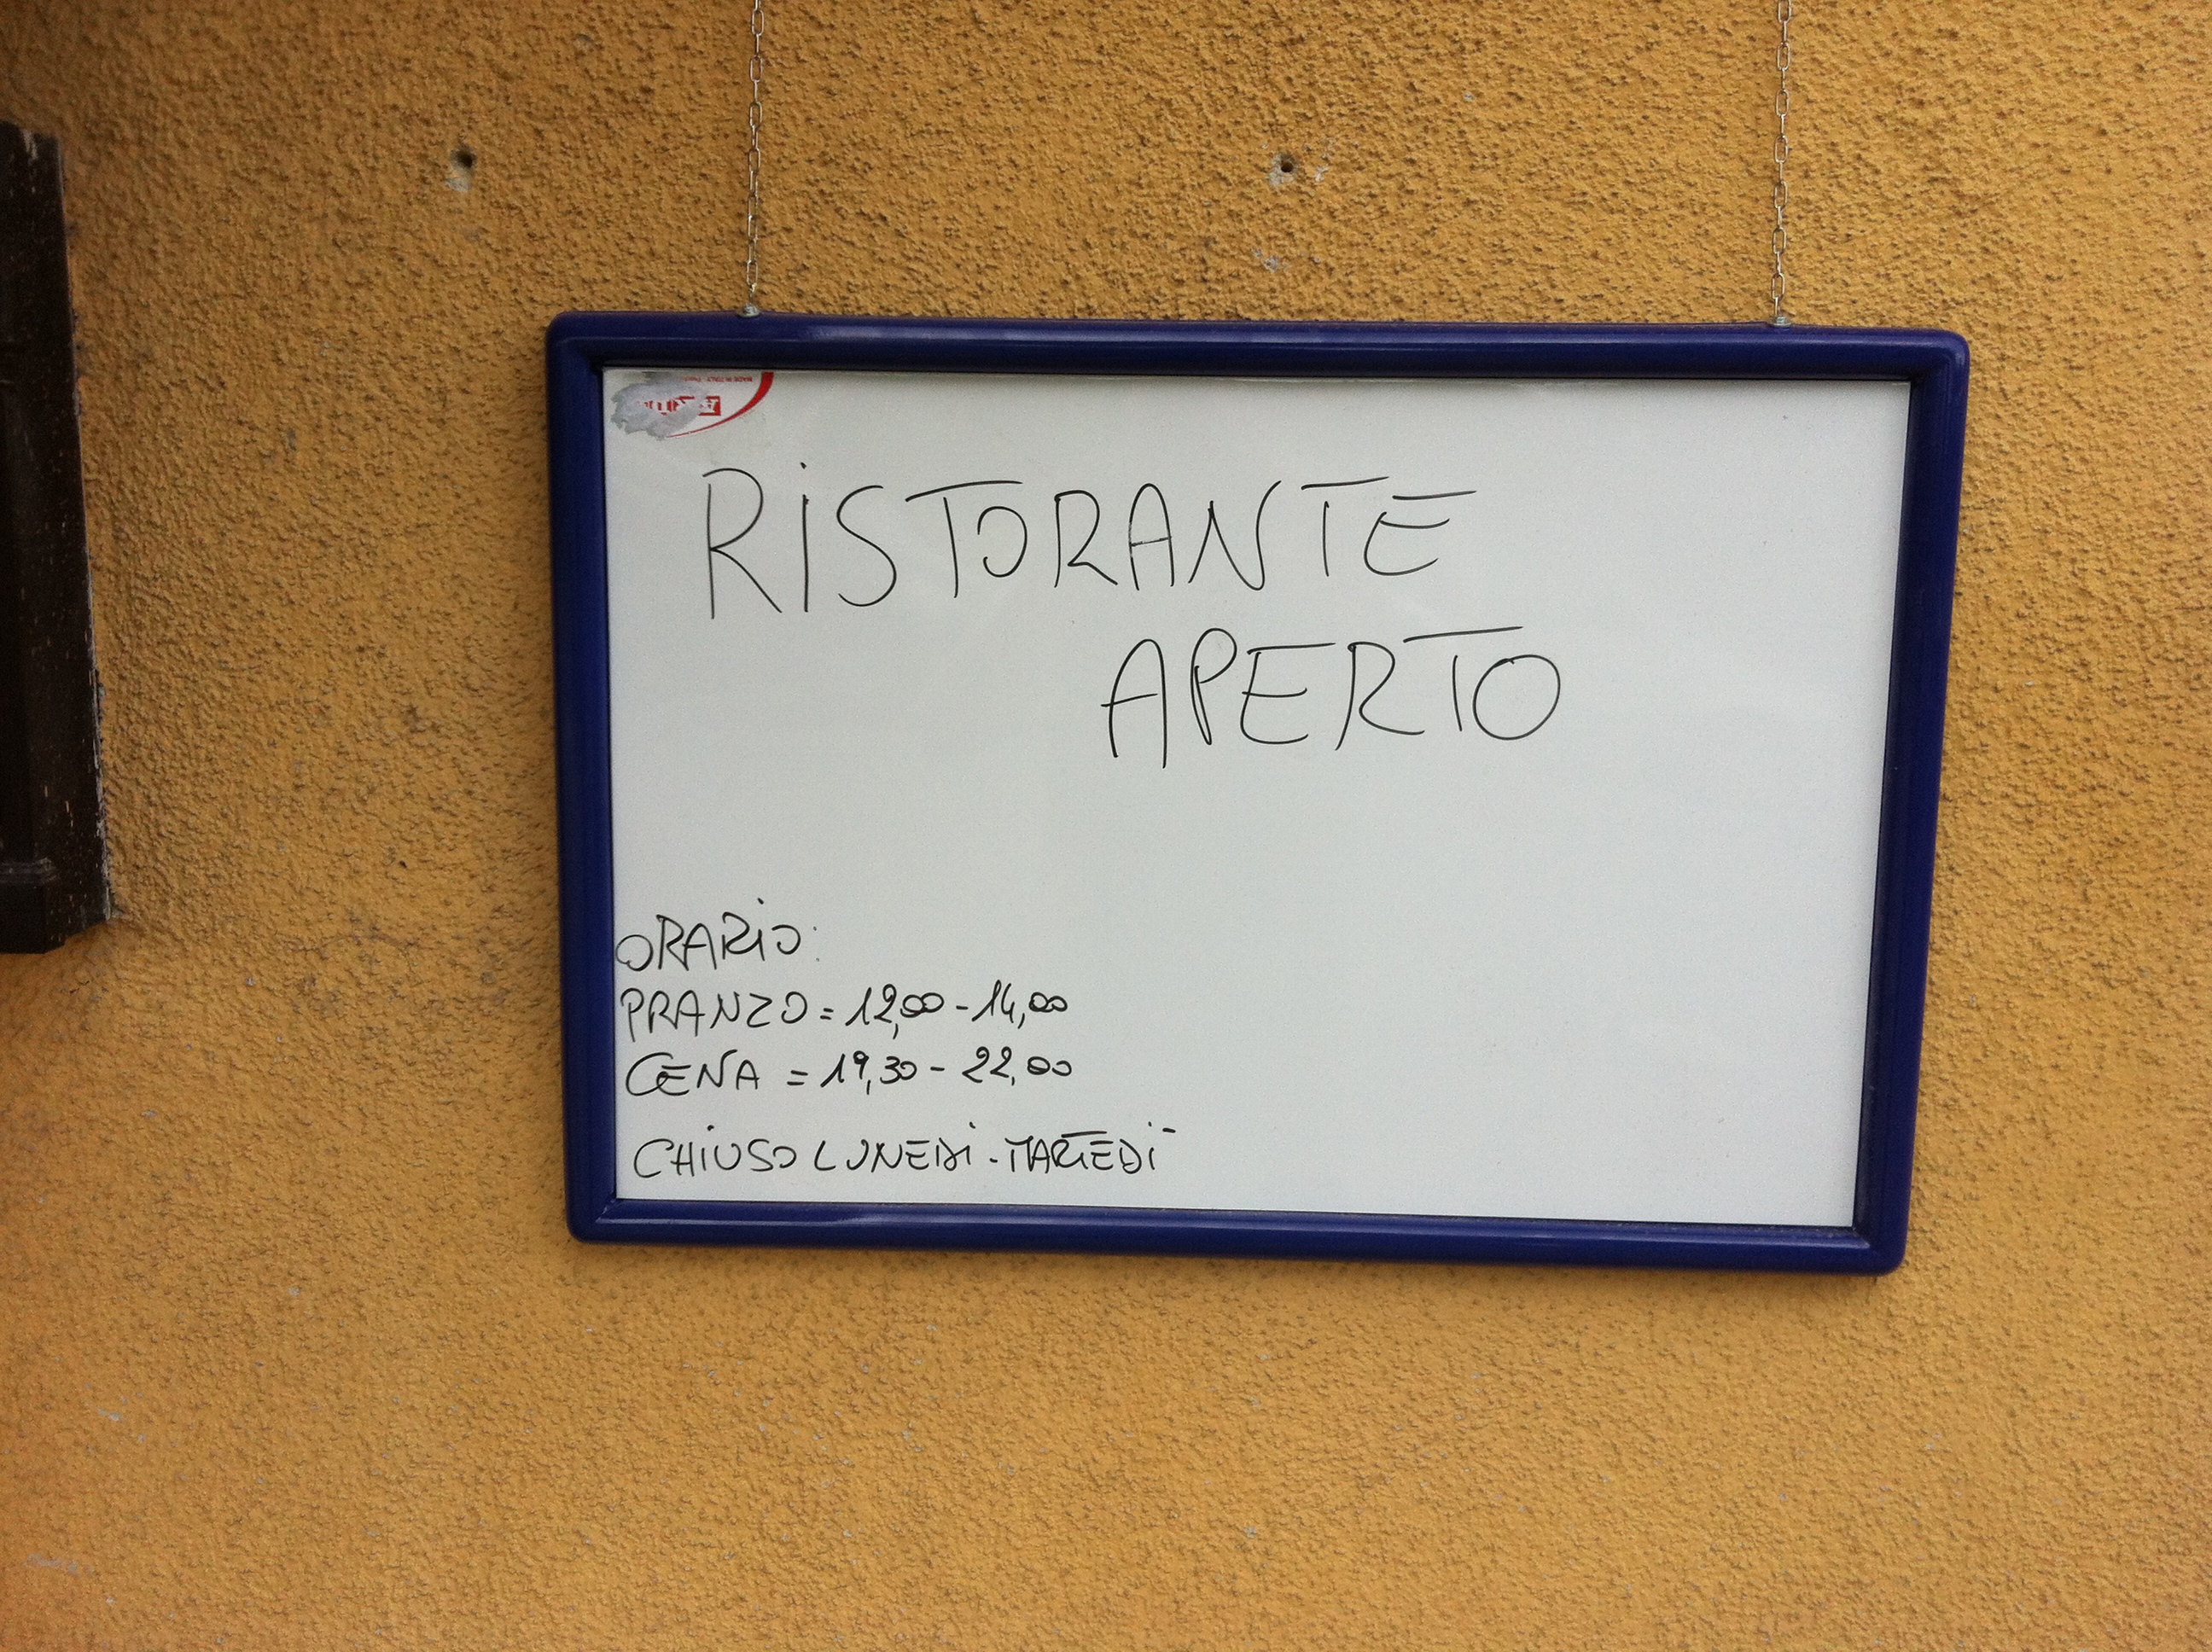 RISTORANTE
APERTO
ORARIO:
PRANZO = 12,00 - 14,00
CENA = 19,30 - 22,00
CHIUSO LUNEDI - MARTEDI
MADE IN ITALY